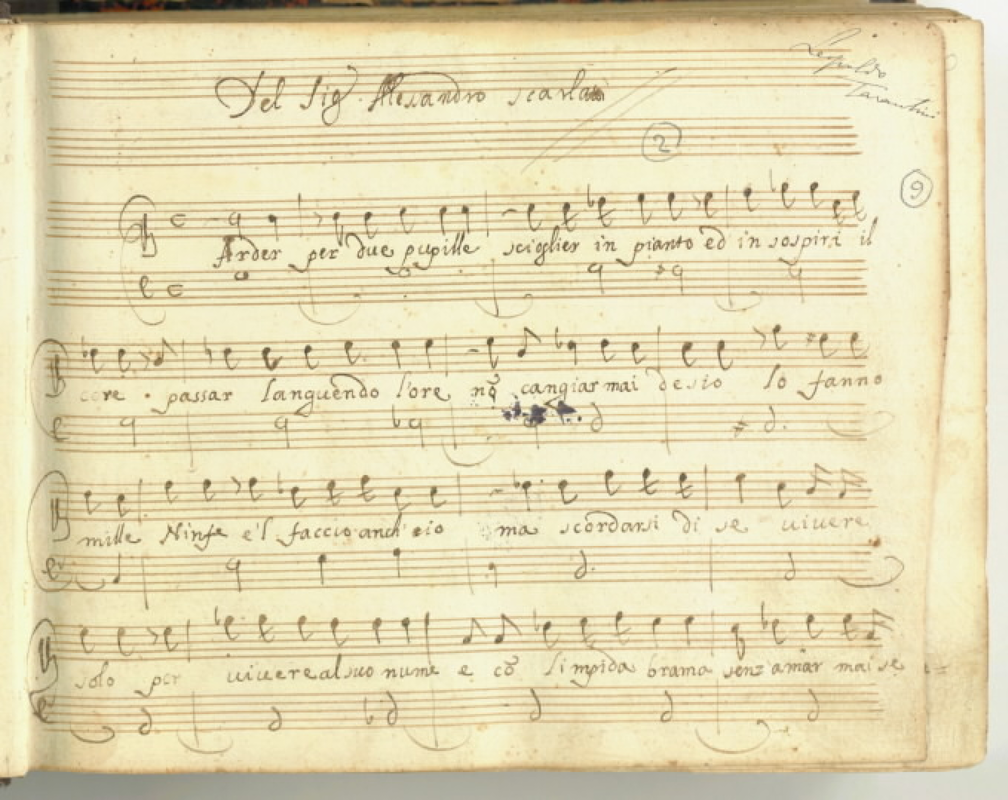 Del Sig.r Alesandro Scarlatti
Leopoldo
Tarantini
2
9
Arder per due pupille sciglier in pianto ed in sospiri il
core passar languendo l'ore nõ cangiar mai desio lo fanno
mille Ninfe e'l faccio anch'eio ma scordarsi di se vivere
solo per vivere al suo nume e cõ limpida brama senz'amar mai se